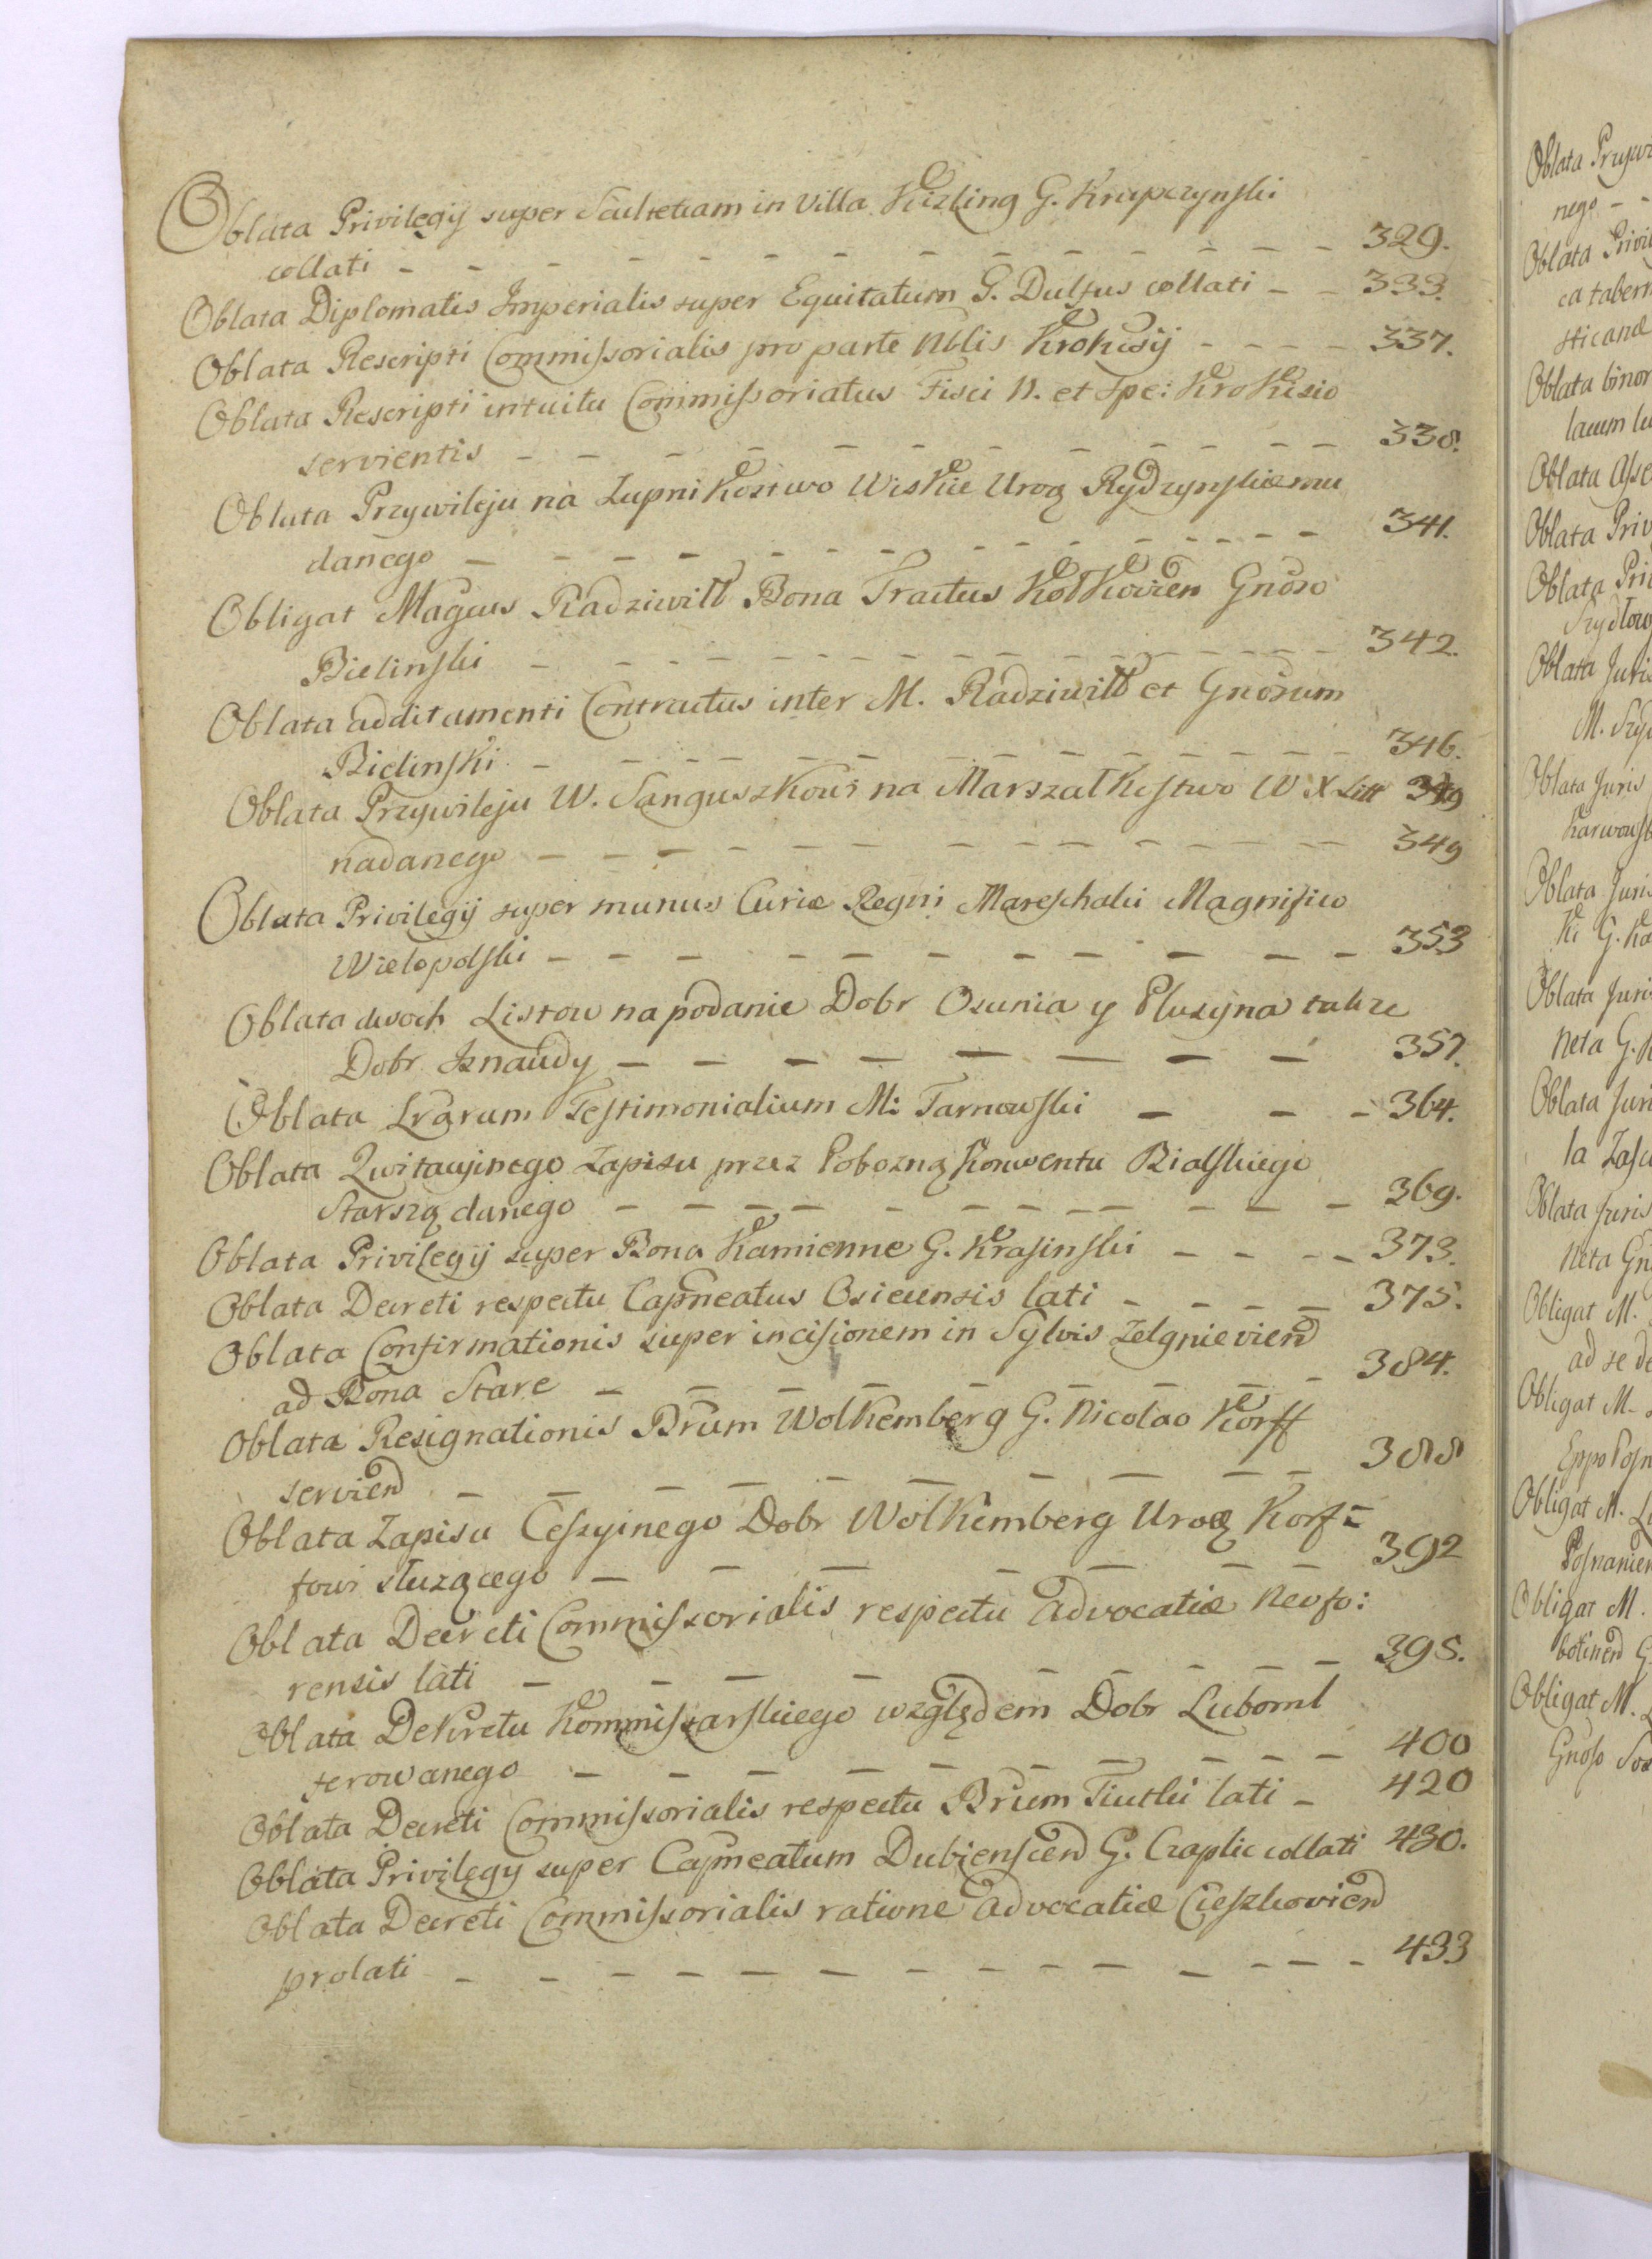 Oblata Privilegij super Scultetiam in Villa Kizling G. Krupczynski
collati - - - - - - - - - - - - 329.
Oblata Diplomatis Imperialis super Equitatum G. Dulfus collati - - 333.
Oblata Rescripti Commissorialis pro parte Nblis Krokisij - - - - 337.
Oblata Rescripti intuitu Commissoriatus Fisci N. et Spe: Krokisio
servientis - - - - - - - - - - - 338.
Oblata Przywileju na Zupnikostwo Wiskie Uroą Rydzynskiemu
danego - - - - - - - - - - - - 341.
Obligat Magcus Radziwill Bona Tractus Kotkovien Gnoso
Bielinski - - - - - - - - - - - - 342.
Oblata additamenti Contractus inter M. Radziwill et Gnosum
Bielinski - - - - - - - - - - - - 346.
Oblata Przywileju W. Sanguszkowi na Marszalkestwo W X Litt 349
nadanego - - - - - - - - - - - 349
Oblata Privilegij super munus Curiæ Regni Mareschalci Magnifico
Wielopolski - - - - - - - - - - 353
Oblata dwoch Listow na podanie Dobr Osunia y Plusyna takze
Dobr Isnaudy - - - - - - - - 357.
Oblata Lrarum Testimonialium M: Tarnowski - - - 364.
Oblata Qwitacyinego Zapisu przez Pobozną Konwentu Bialskiego
Starszą danego - - - - - - - - - - 369.
Oblata Privilegij super Bona Kamienne G. Krasinski - - - - 373.
Oblata Decreti respectu Capneatus Osiecensis lati - - - - 375.
Oblata Confirmationis super incisionem in Sylvis Zelgnievien
ad Bona Stare - - - - - - - - 384.
Oblata Resignationis Brum Wolkemberg G. Nicolao Korff
servien - - - - - - - - - 388
Oblata Zapisu Cessyinego Dobr Wolkemberg Uroą Korf=
fowi sluzącego - - - - - - - 392
Oblata Decreti Commissorialis respectu Advocatiæ Neofo:
rensis lati - - - - - - - - - 395.
Oblata Dekretu Kommissarskiego względem Dobr Luboml
ferowanego - - - - - - - - - 400
Oblata Decreti Commissorialis respectu Brum Tiutki lati - 420
Oblata Privilegy super Capneatum Dubiensem G. Czaplic collati 430.
Oblata Decreti Commissorialis ratione Advocatiæ Cieszkovien
prolati - - - - - - - - - - - - 433
Oblata
nego - -
Oblata
ca
sticanæ
Oblata binor
lacum
Oblata
Oblata
Oblata
Oblata Juris
M.
Oblata Juris
Oblata
Ki G.
Oblata
neta G.
Oblata
la
Oblata Juris
neta
Obligat M.
ad se
Obligat M.
Obligat M.
Obligat M.
Obligat M.
Gnoso